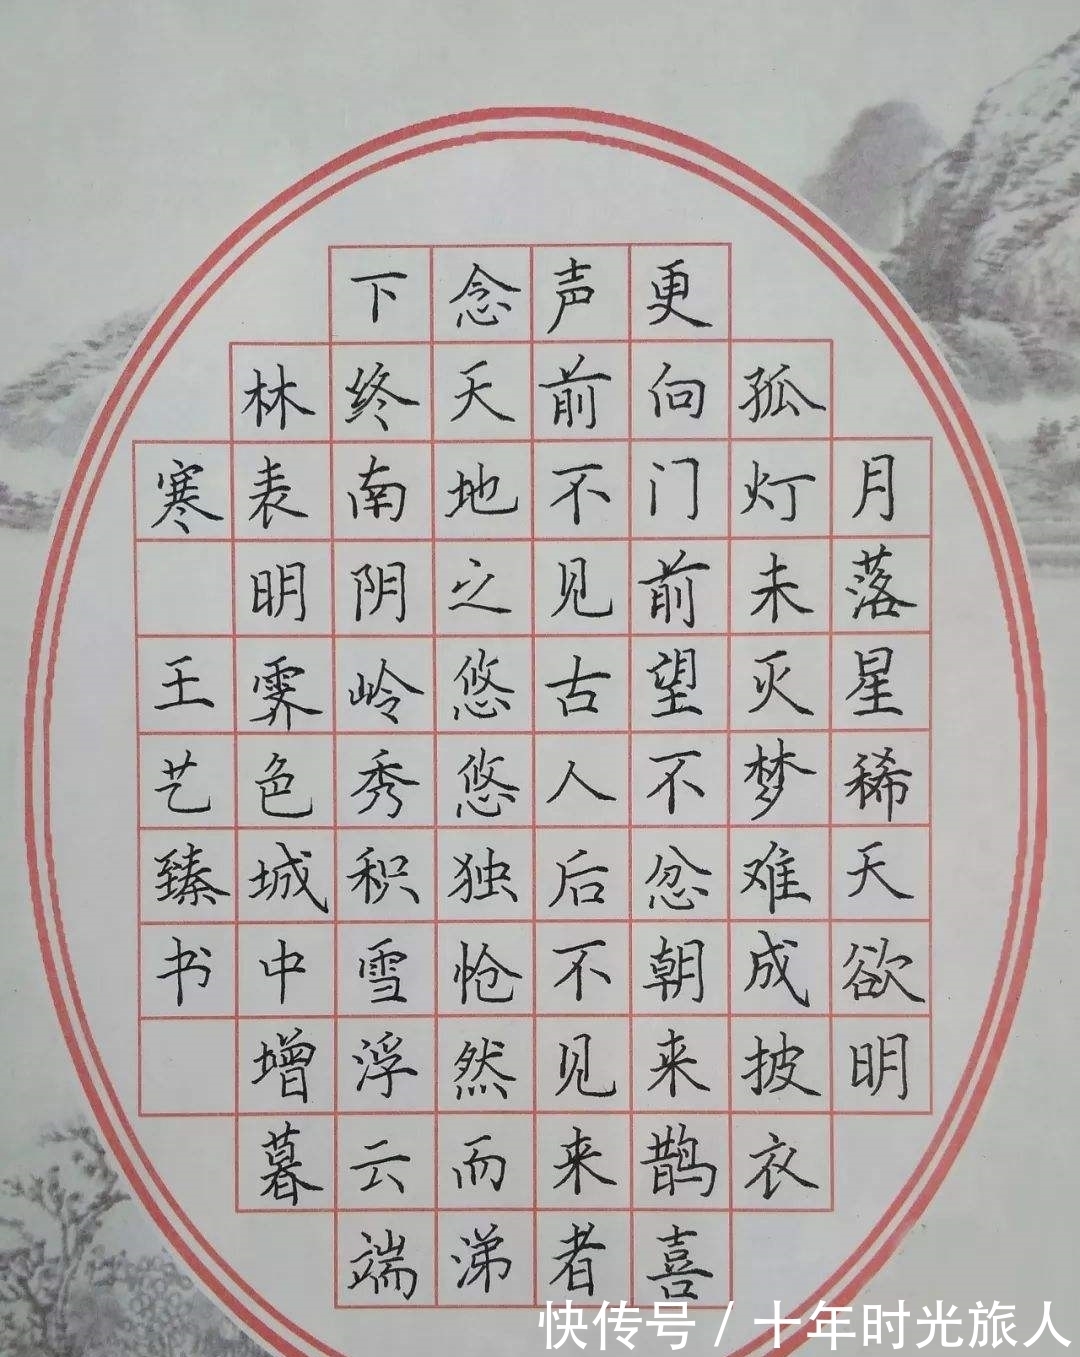 月落星稀天欲明
孤灯未灭梦难成披衣
更向门前望不忿朝来鹊喜
声前不见古人后不见来者
念天地之悠悠独怆然而涕
下终南阴岭秀积雪浮云端
林表明霁色城中增暮
寒 王艺臻书
快传号 / 十年时光旅人